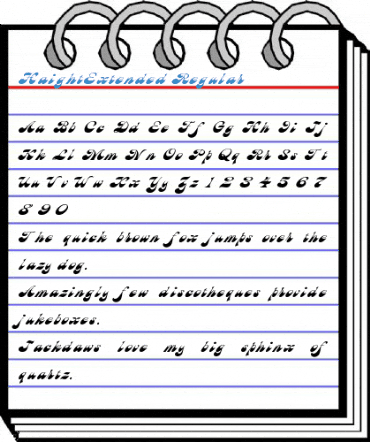 HaightExtended Regular
Aa Bb Cc Dd Ee Ff Gg Hh Ii Jj
Kk Ll Mm Nn Oo Pp Qq Rr Ss Tt
Uu Vv Ww Xx Yy Zz 1 2 3 4 5 6 7
8 9 0
The quick brown fox jumps over the
lazy dog.
Amazingly few discotheques provide
jukeboxes.
Jackdaws love my big sphinx of
quartz.